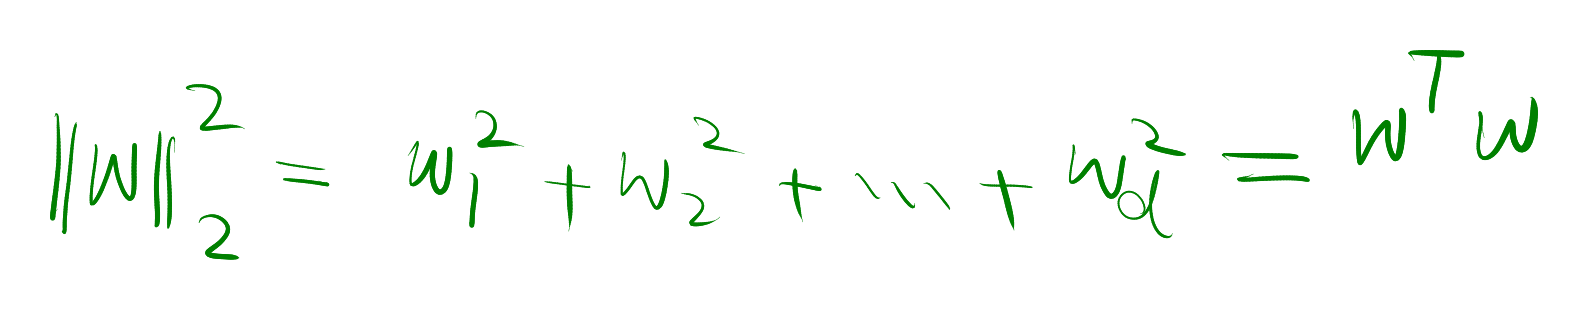 ‖w‖₂² = w₁² + w₂² + ... + w_d² = wᵀw